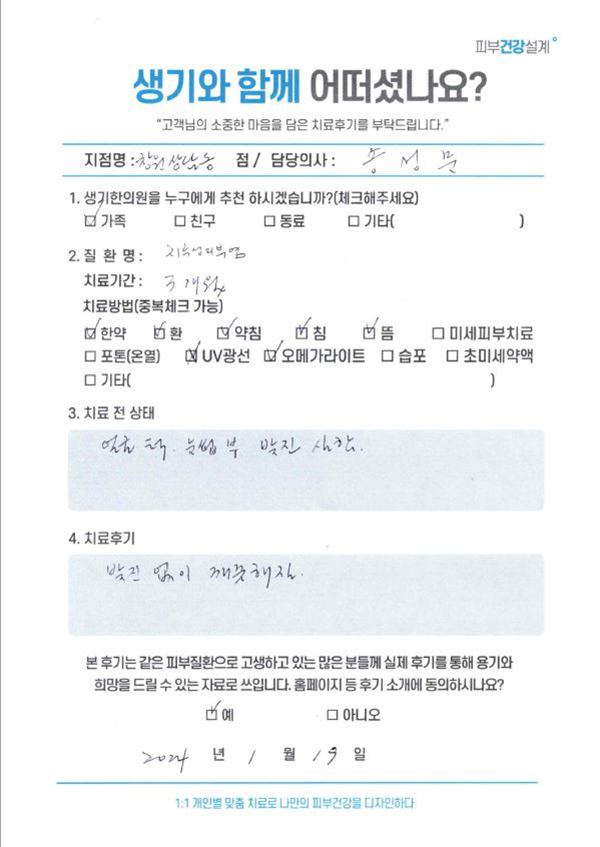 피부건강설계
생기와 함께 어떠셨나요?
“고객님의 소중한 마음을 담은 치료후기를 부탁드립니다.”
지점명 : 창원상남동 점 / 담당의사 : 송성문
1. 생기한의원을 누구에게 추천 하시겠습니까?(체크해주세요)
☑ 가족 ☐ 친구 ☐ 동료 ☐ 기타( )
2. 질 환 명 : 지루성피부염
치료기간 : 3개월
치료방법(중복체크 가능)
☑ 한약 ☑ 환 ☑ 약침 ☑ 침 ☑ 뜸 ☐ 미세피부치료
☐ 포톤(온열) ☑ UV광선 ☑ 오메가라이트 ☐ 습포 ☐ 초미세약액
☐ 기타( )
3. 치료 전 상태
얼굴 턱. 눈썹 부 발진 심함.
4. 치료후기
발진 없이 깨끗해짐.
본 후기는 같은 피부질환으로 고생하고 있는 많은 분들께 실제 후기를 통해 용기와
희망을 드릴 수 있는 자료로 쓰입니다. 홈페이지 등 후기 소개에 동의하시나요?
☑ 예 ☐ 아니오
2024 년 1 월 19 일
1:1 개인별 맞춤 치료로 나만의 피부건강을 디자인하다